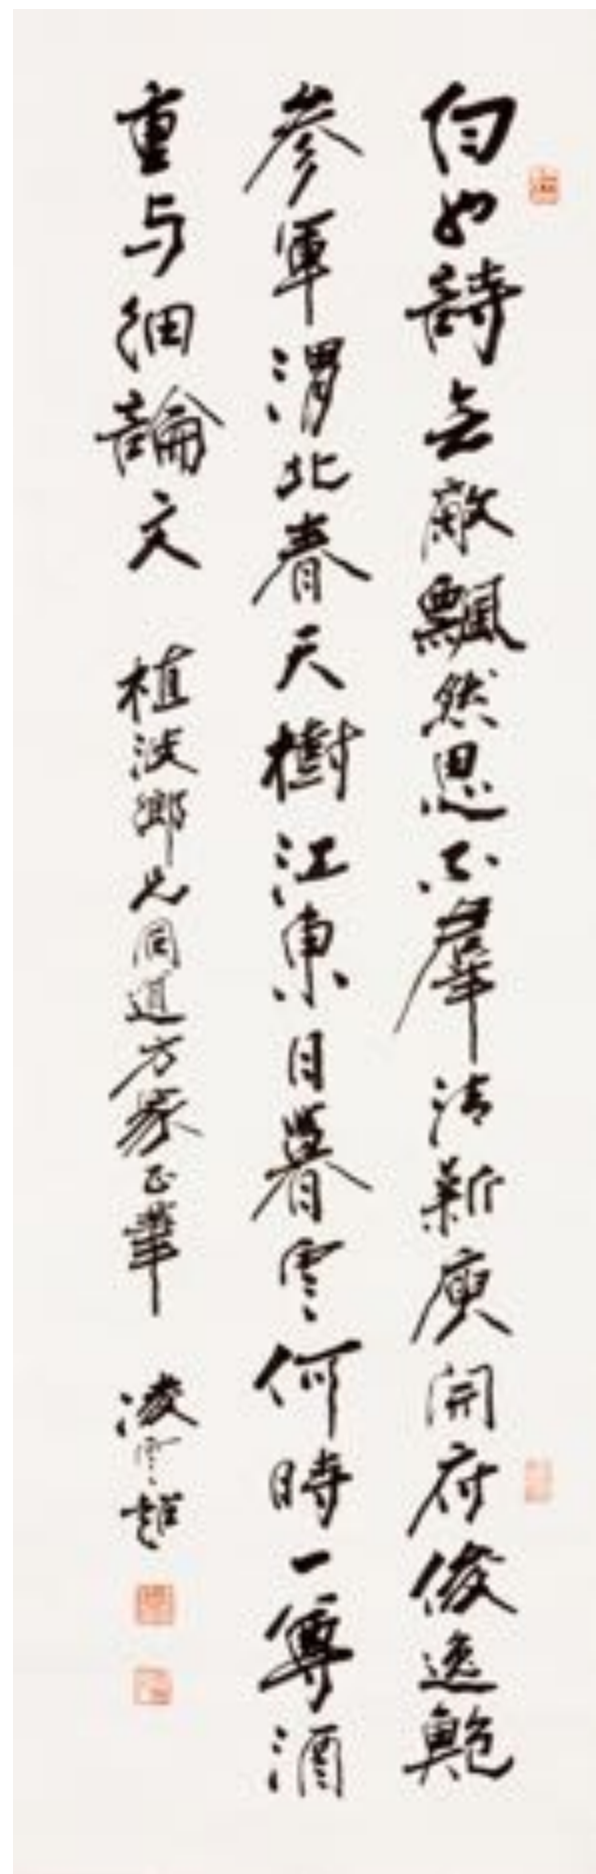 白也詩無敵飄然思不羣清新庾開府俊逸鮑
參軍渭北春天樹江東日暮雲何時一尊酒
重与細論文 植波鄉兄同道方家正筆 凌雲超